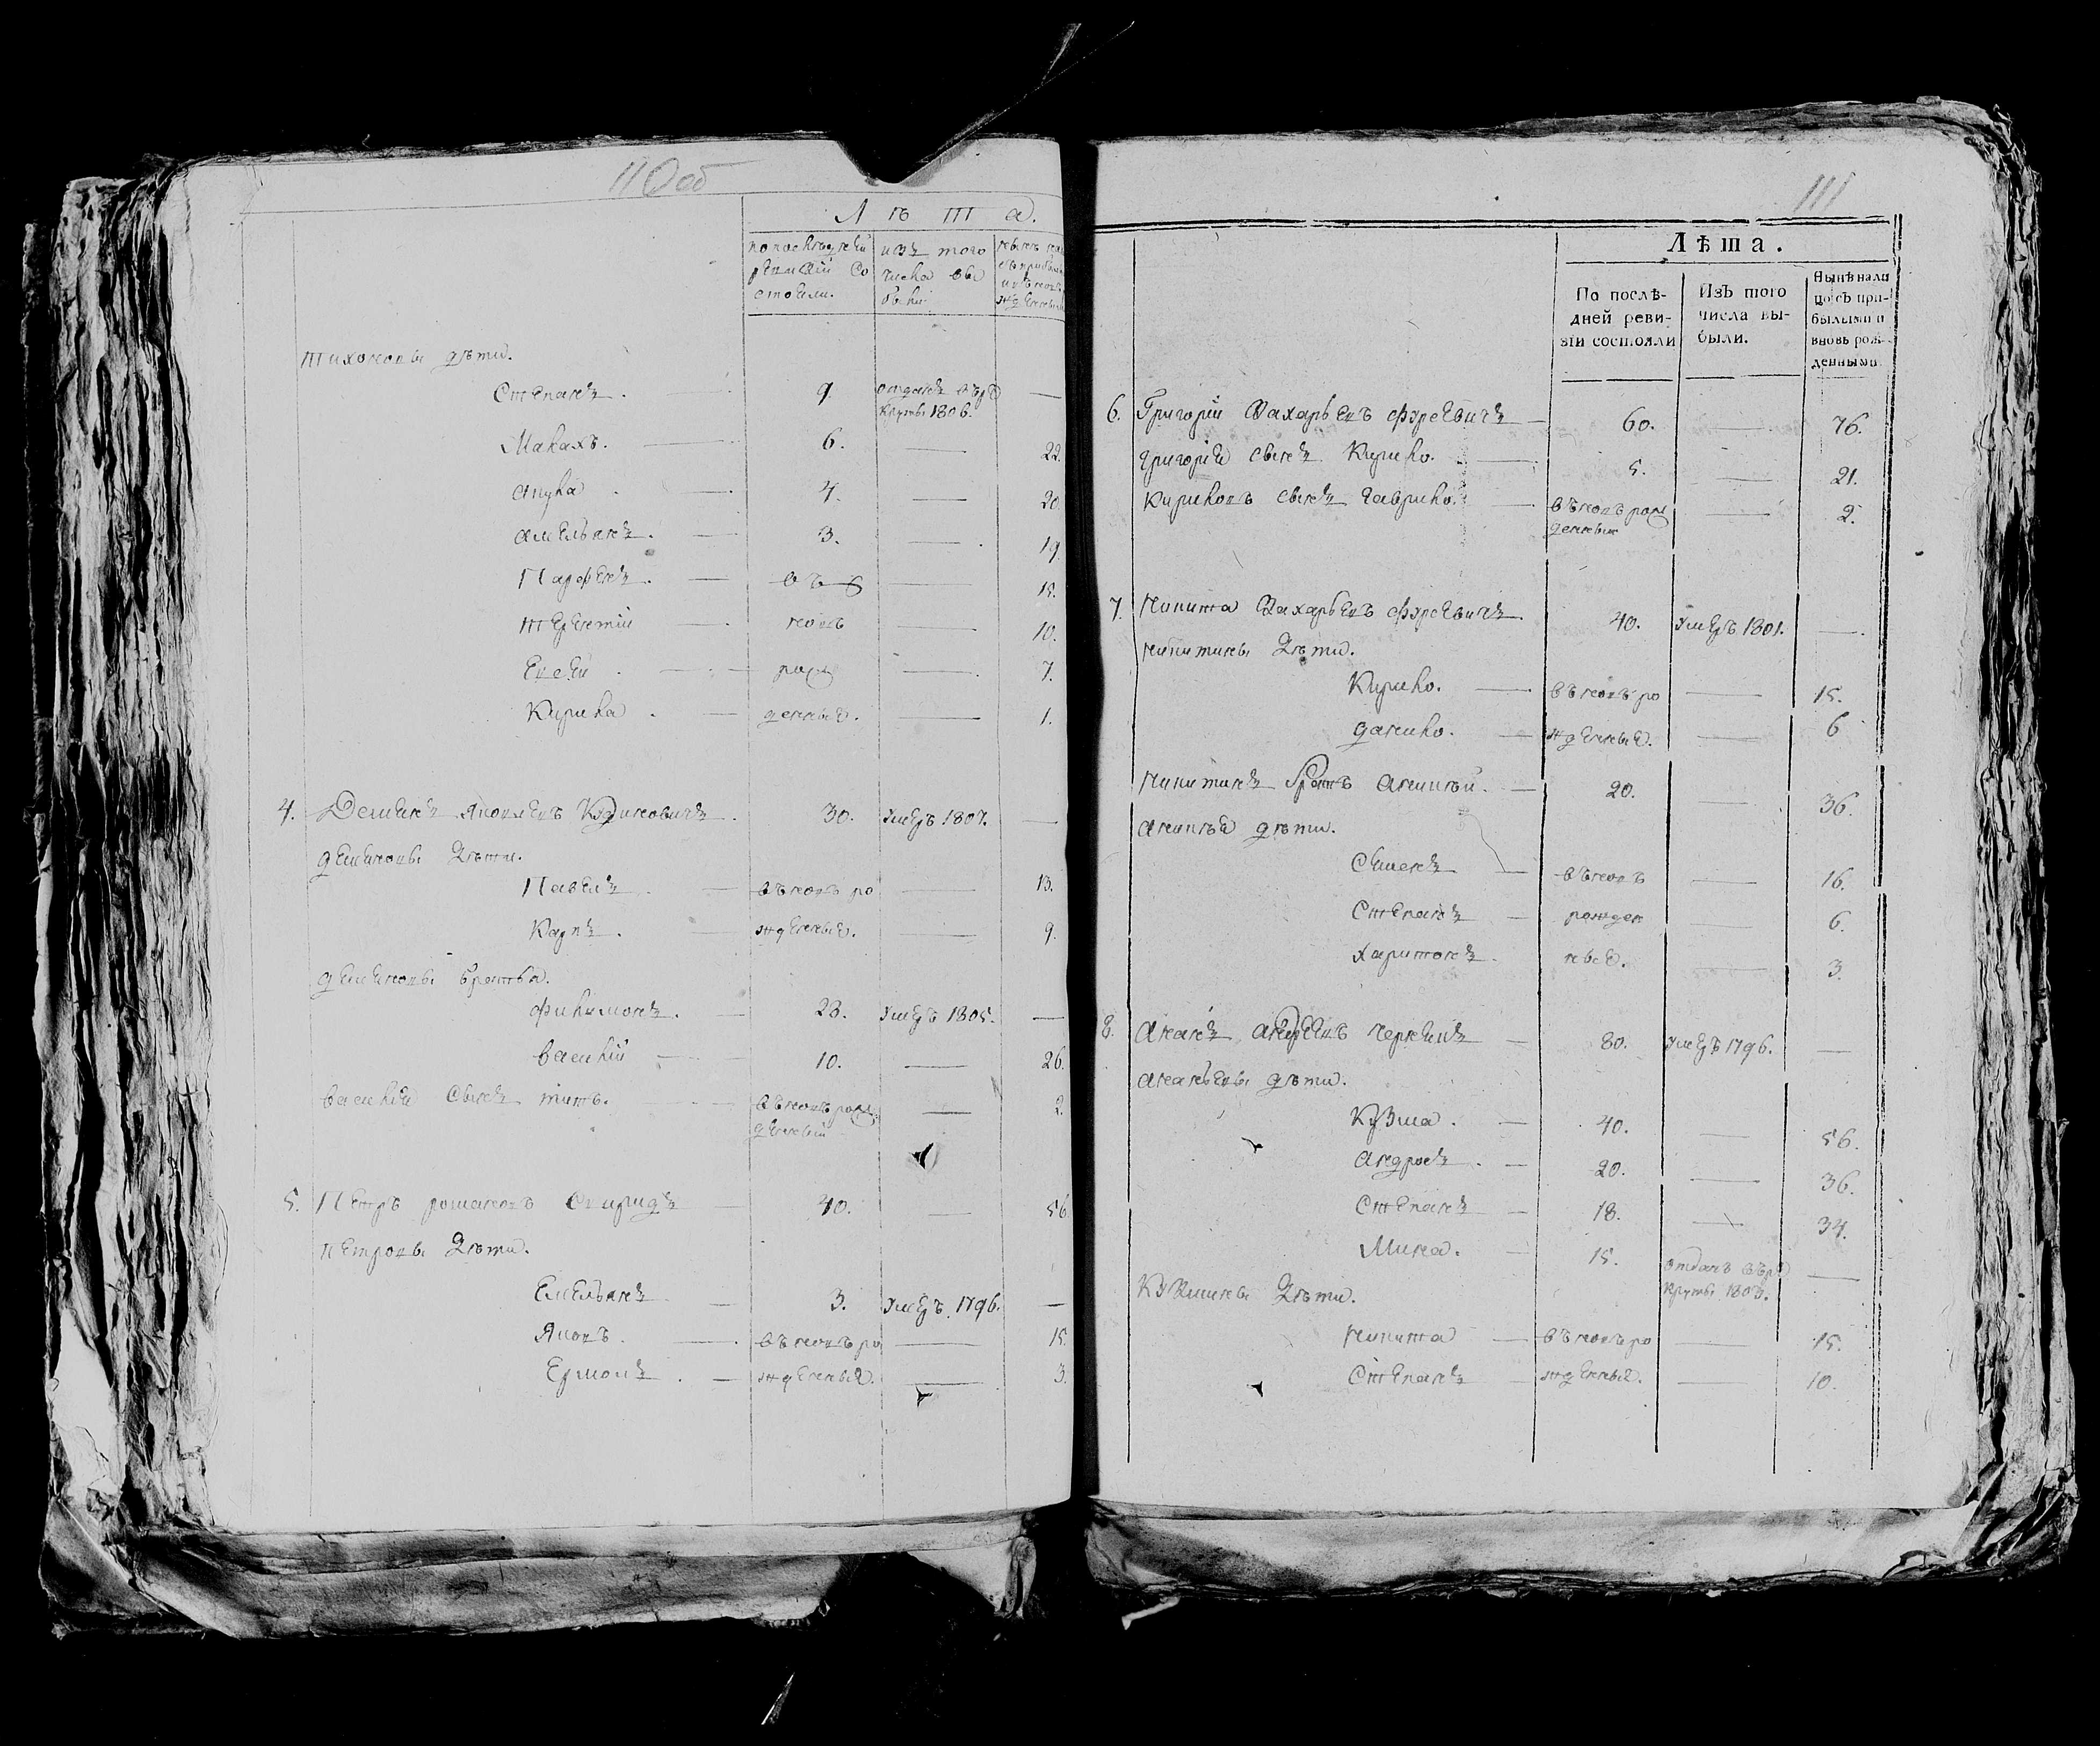 110 об
Лѣта.
по последней
ревизіи со
стояли.
изъ того
числа вы
были
Тихоновы дѣти.
Степанъ. 9. отданъ въ ре
круты 1806. —
Малахъ. 6. — 22.
Лука. 4. — 20.
Амельянъ. 3. — 19.
Парфенъ. въ — 15.
Терентий вновь — 10.
Евсей. рож — 7.
Кирила. денные. — 1.
4. Демянъ Яковлевъ Кудиновичъ. 30. умеръ 1807. —
Демяновы дѣти.
Павелъ. вновь ро — 13.
Карпъ. жденные. — 9.
Демяновы братья.
Филимонъ. 28. умеръ 1805. —
Василий 10. — 26.
Василия сынъ титъ. вновь рож — 2.
денный
5. Петръ романовъ Свиридъ 40. — 56
Петровы дѣти.
Емельянъ 3. умеръ 1796. —
Яковъ. вновь ро — 15.
Ермолъ. жденные. — 3.
111
Лѣта.
По послѣ-
дней реви-
зіи состояли
Изъ того
числа вы-
были.
Нынѣ нали
цо съ при-
былыми и
вновь рож-
денными.
6. Григорий Захарьевъ Фурсевичъ 60. — 76.
Григория сынъ Кирило. 5. — 21.
Кириловъ сынъ Гаврило. вновь рож — 2.
денный
7. Никита Захарьевъ Фурсевичъ. 40. умеръ 1801. —
Никитины дѣти.
Кирило. вновь ро — 15.
Данило. жденные. — 6
Никитинъ братъ Аникѣй. 20. — 36.
Аникѣя дѣти.
Семенъ вновь — 16.
Степанъ рожден — 6.
Харитонъ. ные. — 3.
8. Ананъ Андреевъ 80. умеръ 1796. —
Ананьевы дѣти.
Кузма. 40. — 56.
Андрей. 20. — 36.
Степанъ 18. — 34.
Мина. 15. отданъ въ ре
круты 1803. —
Кузмины дѣти.
Никита вновь ро — 15.
Степанъ жденные. — 10.